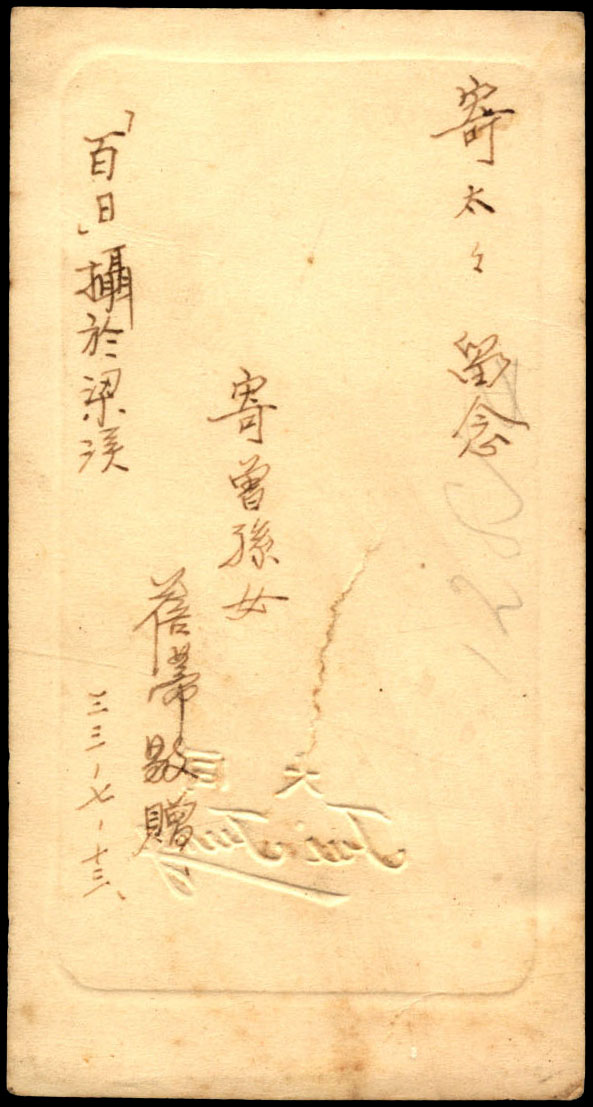 寄太々 留念
寄曾孫女
蓓蒂敬贈
「百日」攝於梁溪
三三－七－十三、